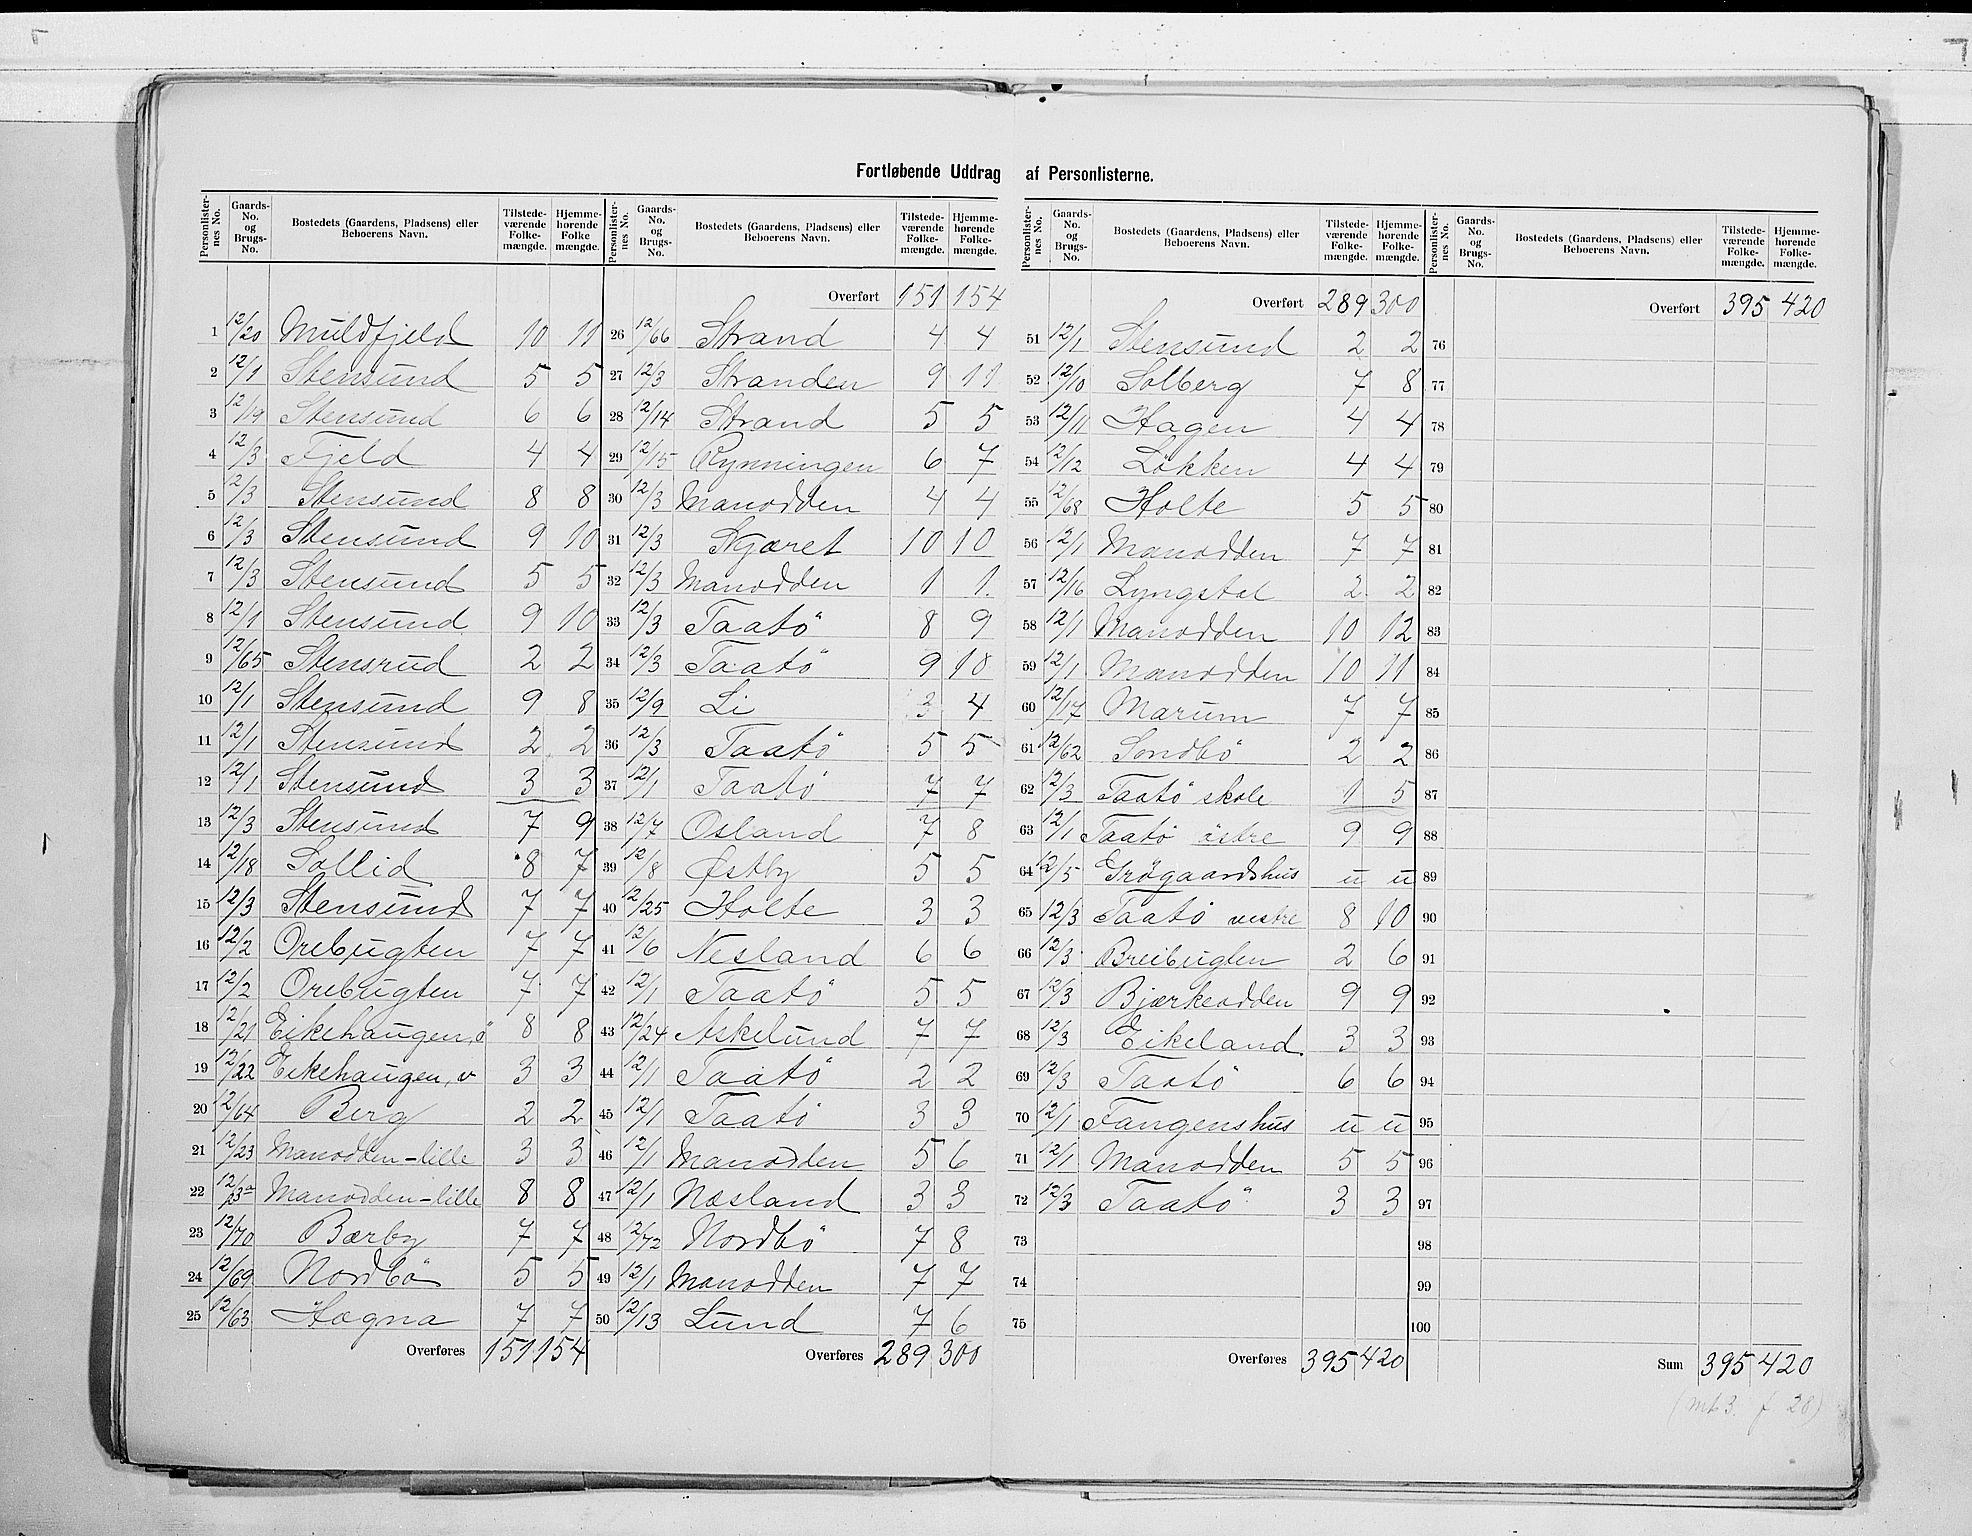 Fortløbende Uddrag af Personlisterne.
Personlister-nes No. | Gaards-No. og Brugs-No. | Bostedets (Gaardens, Pladsens) eller Beboerens Navn. | Tilstede-værende Folke-mængde. | Hjemme-hørende Folke mængde.
1 12/20 Muldfjeld 10 11
2 12/1 Stensund 5 5
3 12/19 Stensund 6 6
4 12/3 Fjeld 4 4
5 12/3 Stensund 8 8
6 12/3 Stensund 9 10
7 12/3 Stensund 5 5
8 12/1 Stensund 9 10
9 12/65 Stensrud 2 2
10 12/1 Stensund 9 8
11 12/1 Stensund 2 2
12 12/1 Stensund 3 3
13 12/3 Stensund 7 9
14 12/18 Sollid 8 7
15 12/3 Stensund 7 7
16 12/2 Orebugten 7 7
17 12/2 Orebugten 7 7
18 12/21 Eikehaugen, ö 8 8
19 12/22 Eikehaugen, v 3 3
20 12/64 Berg 2 2
21 12/23 Manodden-lille 3 3
22 Manodden-lille 8 8
23 12/70 Bærby 7 7
24 12/69 Nordbö 5 5
25 12/63 Hægna 7 7
Overføres 151 154
Personlister-nes No. | Gaards-No. og Brugs-No. | Bostedets (Gaardens, Pladsens) eller Beboerens Navn. | Tilstede-værende Folke-mængde. | Hjemme-hørende Folke-mængde.
Overført 151 154
26 12/66 Strand 4 4
27 12/3 Stranden 9 11
28 12/14 Strand 5 5
29 12/15 Rynningen 6 7
30 12/3 Manodden 4 4
31 12/3 Kjæret 10 10
32 12/3 Manodden 1 1.
33 12/3 Taatö 8 9
34 12/3 Taatö 9 10
35 12/9 Li 3 4
36 12/3 Taatö 5 5
37 12/1 Taatö 7 7
38 12/7 Osland 7 8
39 12/8 Østby 5 5
40 12/25 Holte 3 3
41 12/6 Nesland 6 6
42 12/1 Taatö 5 5
43 12/24 Askelund 7 7
44 12/1 Taatö 2 2
45 12/1 Taatö 3 3
46 12/1 Manodden 5 6
47 12/1 Næsland 3 3
48 12/72 Nordbö 7 8
49 12/1 Manodden 7 7
50 12/13 Lund 7 6
Overføres 289 300
Personlister-nes No. | Gaards-No. og Brugs-No. | Bostedets (Gaardens, Pladsens) eller Beboerens Navn. | Tilstede-værende Folke-mængde. | Hjemme-hørende Folke-mængde.
Overført 289 300
51 12/1 Stensund 2 2
52 12/10 Solberg 7 8
53 12/11 Hagen 4 4
54 12/12 Løkken 4 4
55 12/68 Holte 5 5
56 12/1 Manodden 7 7
57 12/16 Lyngstad 2 2
58 12/1 Manodden 10 12
59 12/1 Manodden 10 11
60 12/17 Marum 7 7
61 12/62 Sondbö 2 2
62 12/3 Taatö skole 1 5
63 12/1 Taatö östre 9 9
64 12/5 Grögaardshus u u
65 12/3 Taatö vestre 8 10
66 12/3 Breibugten 2 6
67 12/3 Bjærkeodden 9 9
68 12/3 Eikeland 3 3
69 12/3 Taatö 6 6
70 12/1 Fangenshus u u
71 12/1 Manodden 5 5
72 12/3 Taatö 3 3
73
74
75
Overføres 395 420
Personlister-nes No. | Gaards-No. og Brugs-No. | Bostedets (Gaardens, Pladsens) eller Beboerens Navn. | Tilstede-værende Folke-mængde. | Hjemme-hørende Folke-mængde.
Overført 395 420
76
77
78
79
80
81
82
83
84
85
86
87
88
89
90
91
92
93
94
95
96
97
98
99
100
Sum 395 420